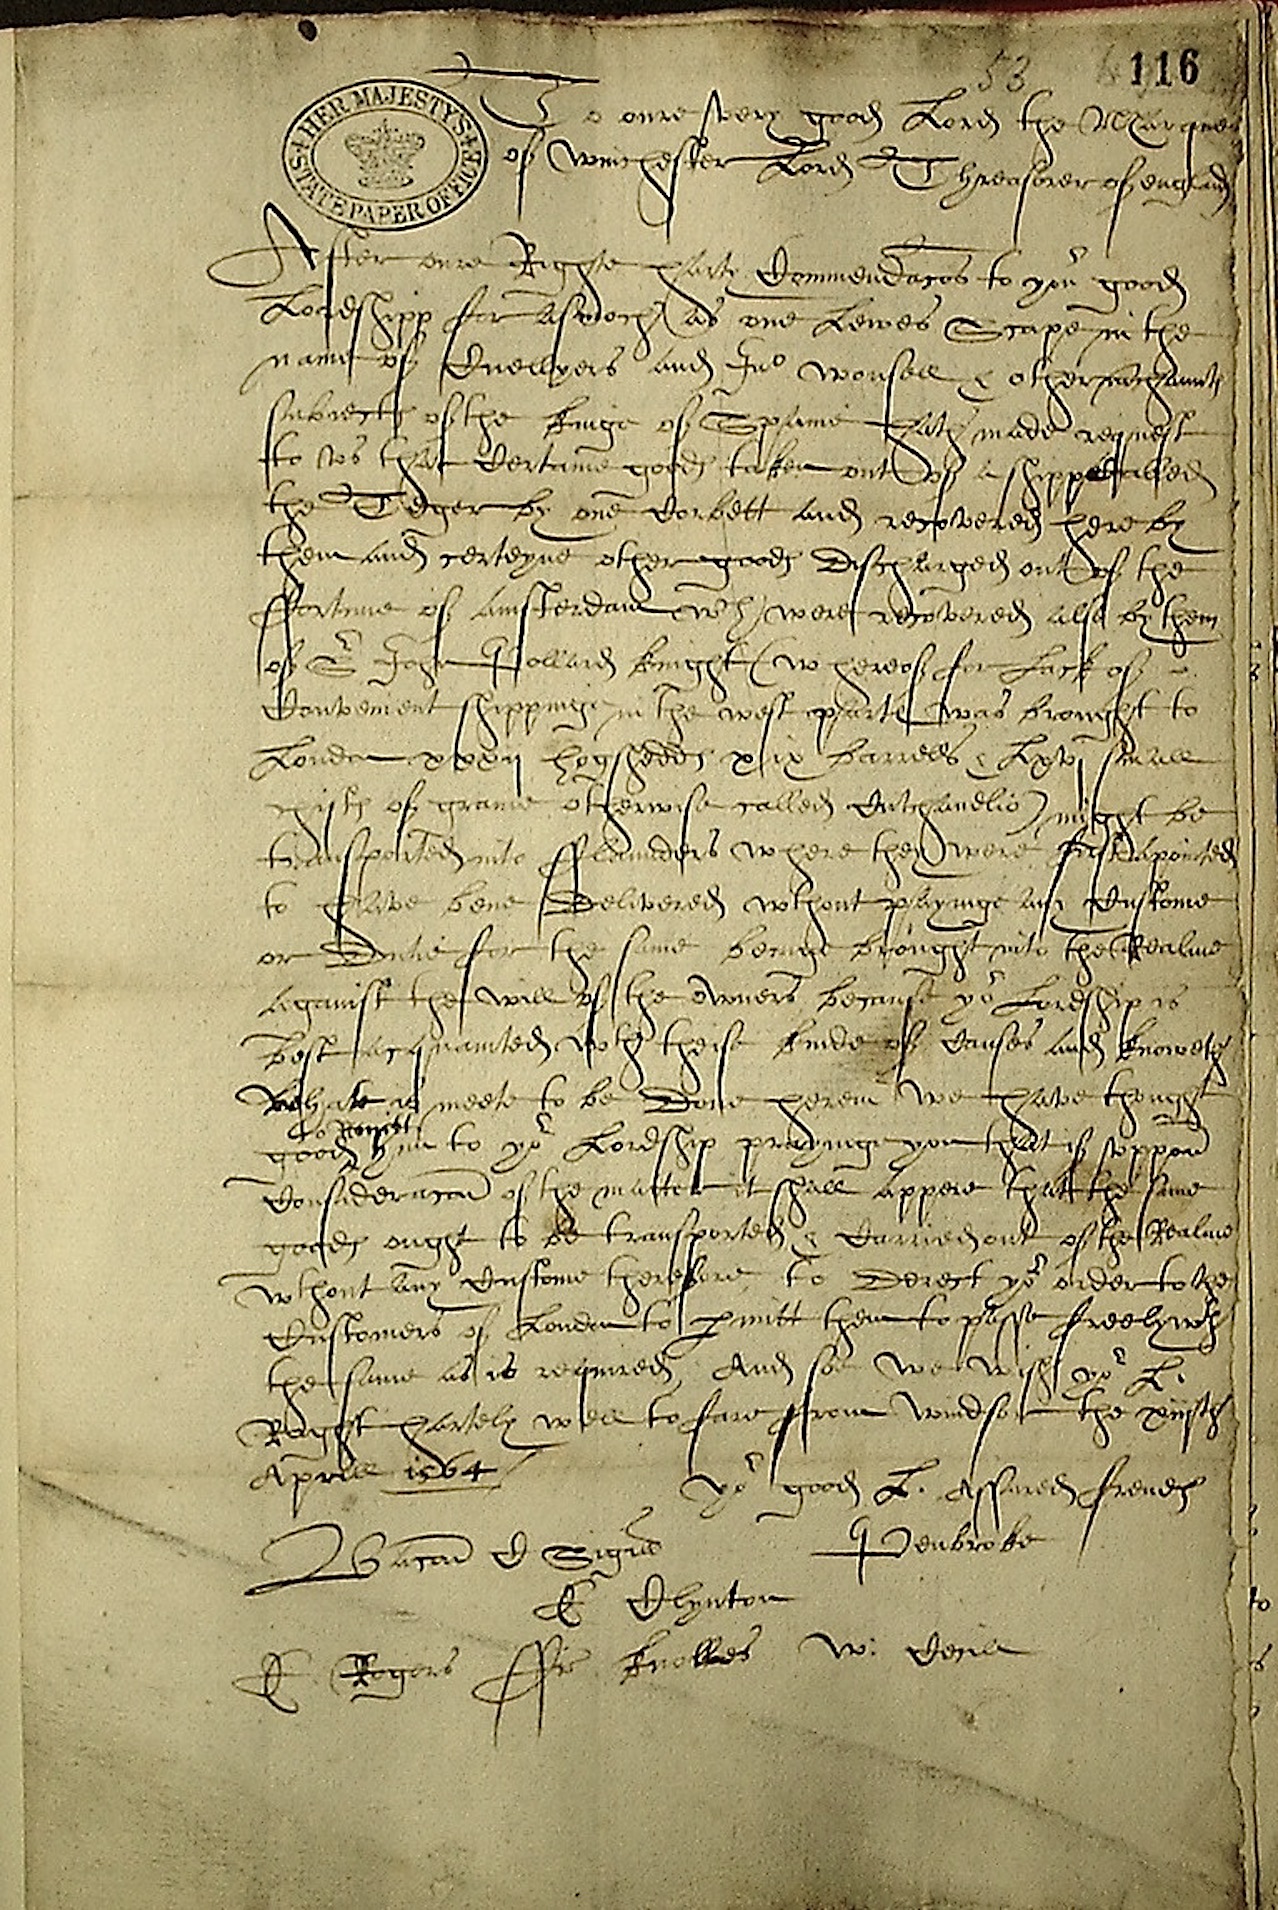 53 116
HER MAJESTY'S STATE PAPER OFFICE
To oure very good Lord the Marques
of Winchester Lord Threasorer of england
After oure Right harty Commendacōs to yoʳ good
Lordshipp for asmoch as one Lewes Scape in the
name of Cuellyers and Jnº Wonsell & other mrchaunts
subiects of the kinge of Spaine hath made request
to vs that Certaine goods taken out of a shipp called
the Teger by one Corbett and recovered here by
them and certeyne other goods Discharged out of the
ffortune of Amsterdam (wch) were recovered also by them
of Sʳ John Pollard knight (whereof for lack of
Convenient shippinge in the west parte was brought to
London xxxii hogshedds xix barrells & Lxvi small
of graine otherwise called ) might be
transported into fflaunders where they were first apointed
to have bene Delivered wthout payinge any Custome
or Dutie for the same beinge brought into the Realme
against the will of the owners because yoʳ Lordship is
best acquainted wth theise kinde of Causes and knoweth
Whate is meete to be Done herein we have thought
to remitt
good him to yoʳ Lordship prayinge you that if vppon
Consideracon of the matter it shall appere that the same
goods ought to be transported & Carried out of the Realme
wthout any Custome therefore to Derect yoʳ order to the
Customers of London to pmitt them to passe freely wth
the same as is required, And soe we wish yoʳ L.
Right hartely well to fare from Windsor the xiijth
Aprill 1564
yoʳ good L. assured frends
Bacon C Sigill
Penbroke
E Clynton
E Rogers ffr knolles W: Cecill
to